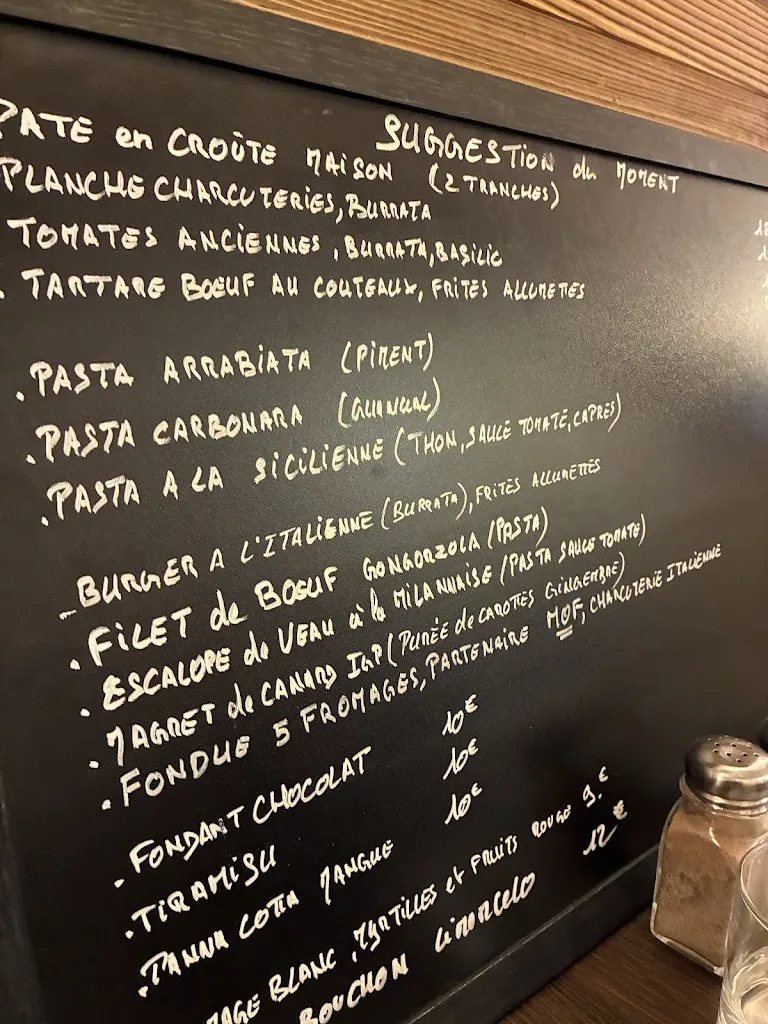 SUGGESTION du MOMENT
PATE en CROÛTE MAISON (2 TRANCHES)
PLANCHE CHARCUTERIES, BURRATA
TOMATES ANCIENNES, BURRATA, BASILIC
. TARTARE BŒUF AU COUTEAUX, FRITES ALLUMETTES
. PASTA ARRABIATA (PIMENT)
. PASTA CARBONARA
. PASTA A LA SICILIENNE (THON, SAUCE TOMATE, CAPRES)
- BURGER A L'ITALIENNE (BURRATA), FRITES ALLUMETTES
. FILET de BŒUF GONGORZOLA (PASTA)
. ESCALOPE de VEAU à la MILANNAISE (PASTA SAUCE TOMATE)
. MAGRET de CANARD IGP (PURÉE de CAROTTES GINGEMBRE)
. FONDUE 5 FROMAGES, PARTENAIRE MOF, CHARCUTERIE ITALIENNE
. FONDANT CHOCOLAT 10€
. TIRAMISU 10€
. PANNA COTTA MANGUE 10€
MAGE BLANC, MYRTILLES et FRUITS ROUGE 9.€
BOUCHON LIMONCELO 12€